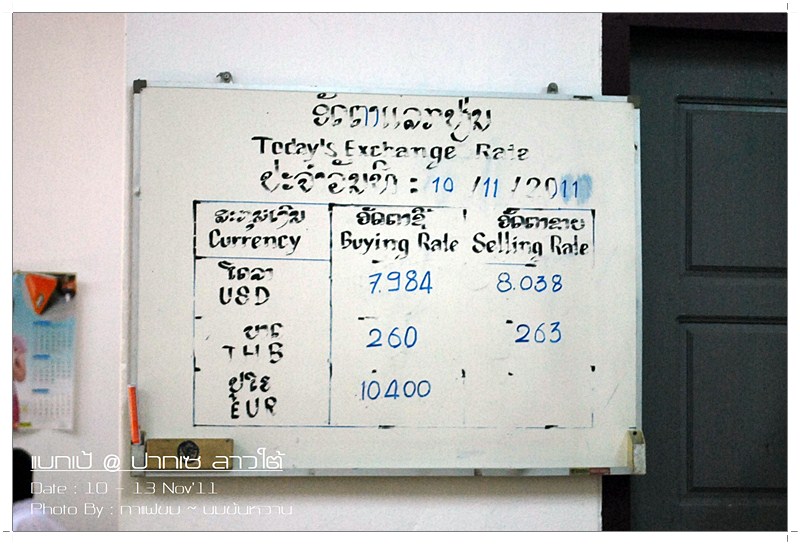 ອັດຕາແລກປ່ຽນ
Today's Exchange Rate
ປະຈຳວັນທີ : 10 / 11 / 2011
ສະກຸນເງິນ ອັດຕາຊື້ ອັດຕາຂາຍ
Currency Buying Rate Selling Rate
ໂດລາ
USD 7.984 8.038
ບາດ
THB 260 263
ຢູໂຣ
EUR 10400
แบกเป้ @ ปากเซ ลาวใต้
Date : 10 - 13 Nov'11
Photo By : กาแฟขม ~ ขมขันหวาน